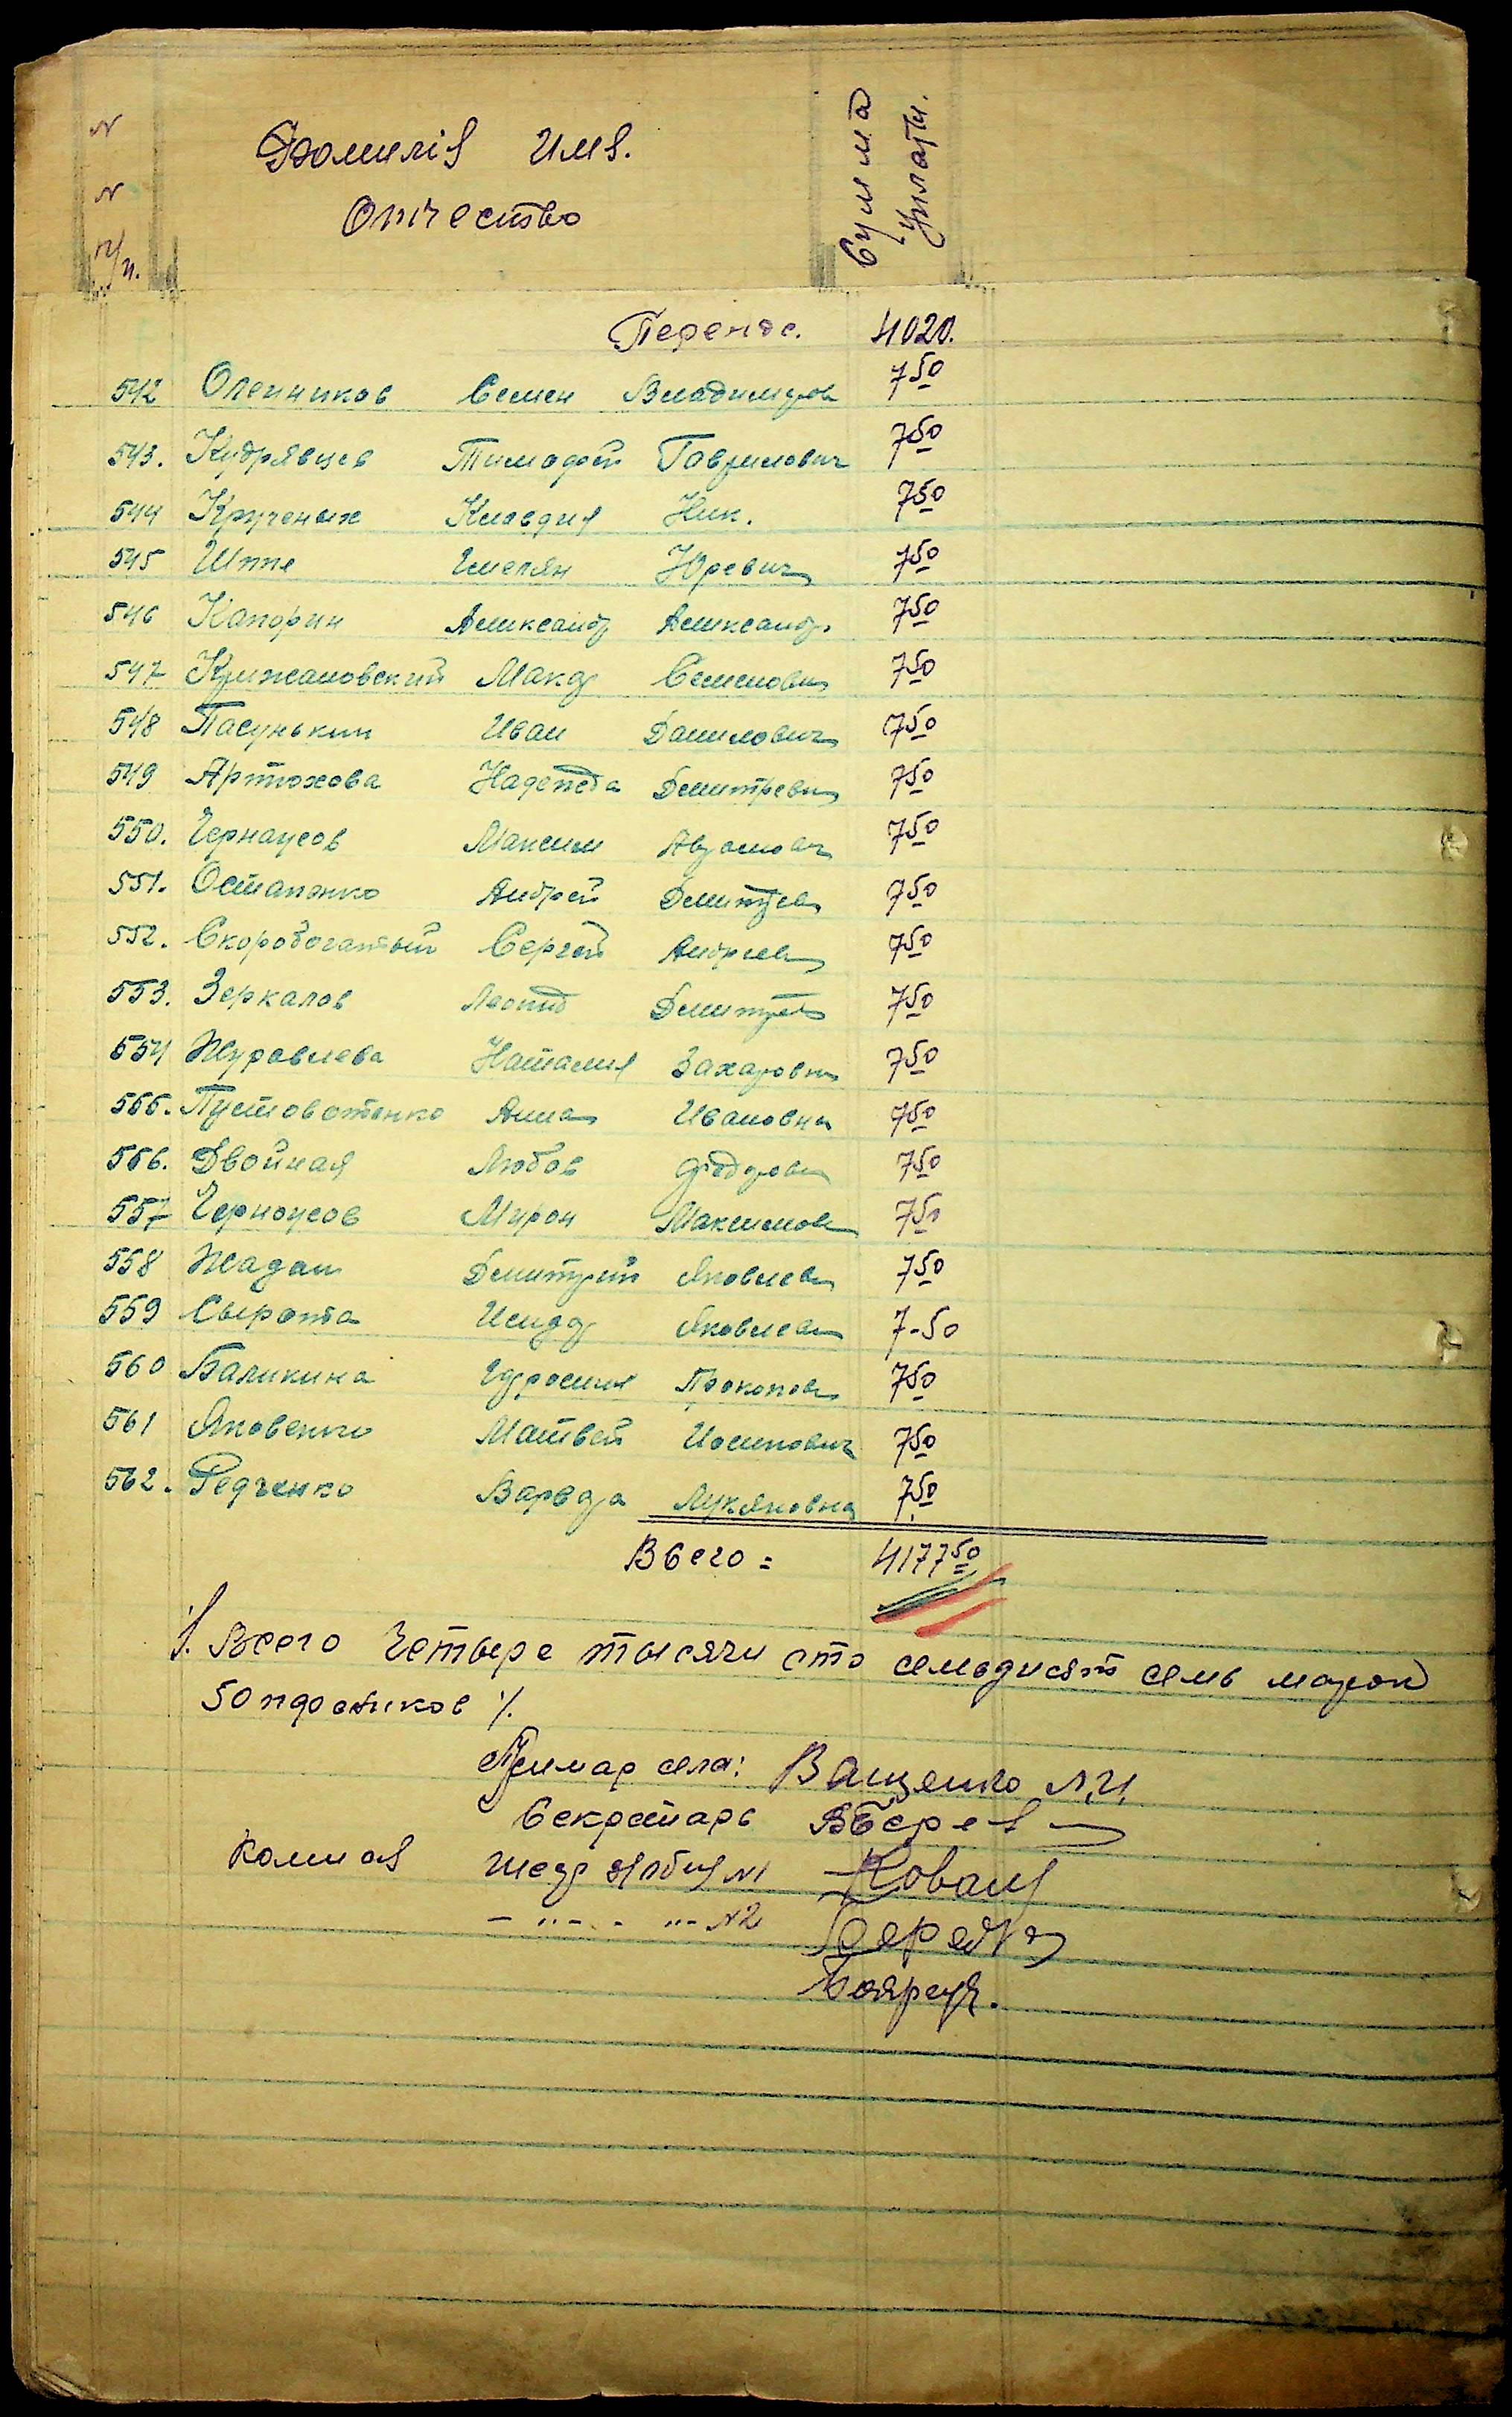 N N п/п. Фамилія Имя. Отчество Сумма уплати.
Перенос. 4020.
542 Олейников Семен Владимиров 7 50
543. Кудрявцев Тимофей Гаврилович 7 50
544 Крученых Клавдия Ник. 7 50
545 Шппе Емелян Юревич 7 50
546 Капорин Александр Александр. 7 50
547 Крижановский Макар Семенович 7 50
548 Пасунькин Иван Данилович 7 50
549 Артюхова Надежда Дмитревн 7 50
550. Чернаусов Максим Абрамович 7 50
551. Остапенко Андрей Дмитрев 7 50
552. Скоробогатый Сергей Андреев 7 50
553. Зеркалов Леонид Дмитрев 7 50
554 Журавлева Наталия Захаровн 7 50
555. Пустовотенко Анна Ивановна 7 50
556. Двойная Любов Федоровн 7 50
557 Черноусов Мирон Максимов 7 50
558 Жадан Дмитрий Яковлев 7 50
559 Сырота Исидор Яковлев 7-50
560 Баликина Прокопов 7 50
561 Яковенко Матвей Иосипович 7 50
562. Редченко Варвара Лукяновна 7 50
Всего = 4177 50
/. Всего Четыре тысячи сто семьдисят семь марок
50 пфеников /.
Примар села: Ващенко Л.И.
Секретарь
№1 Коваль
- " - - " - №2